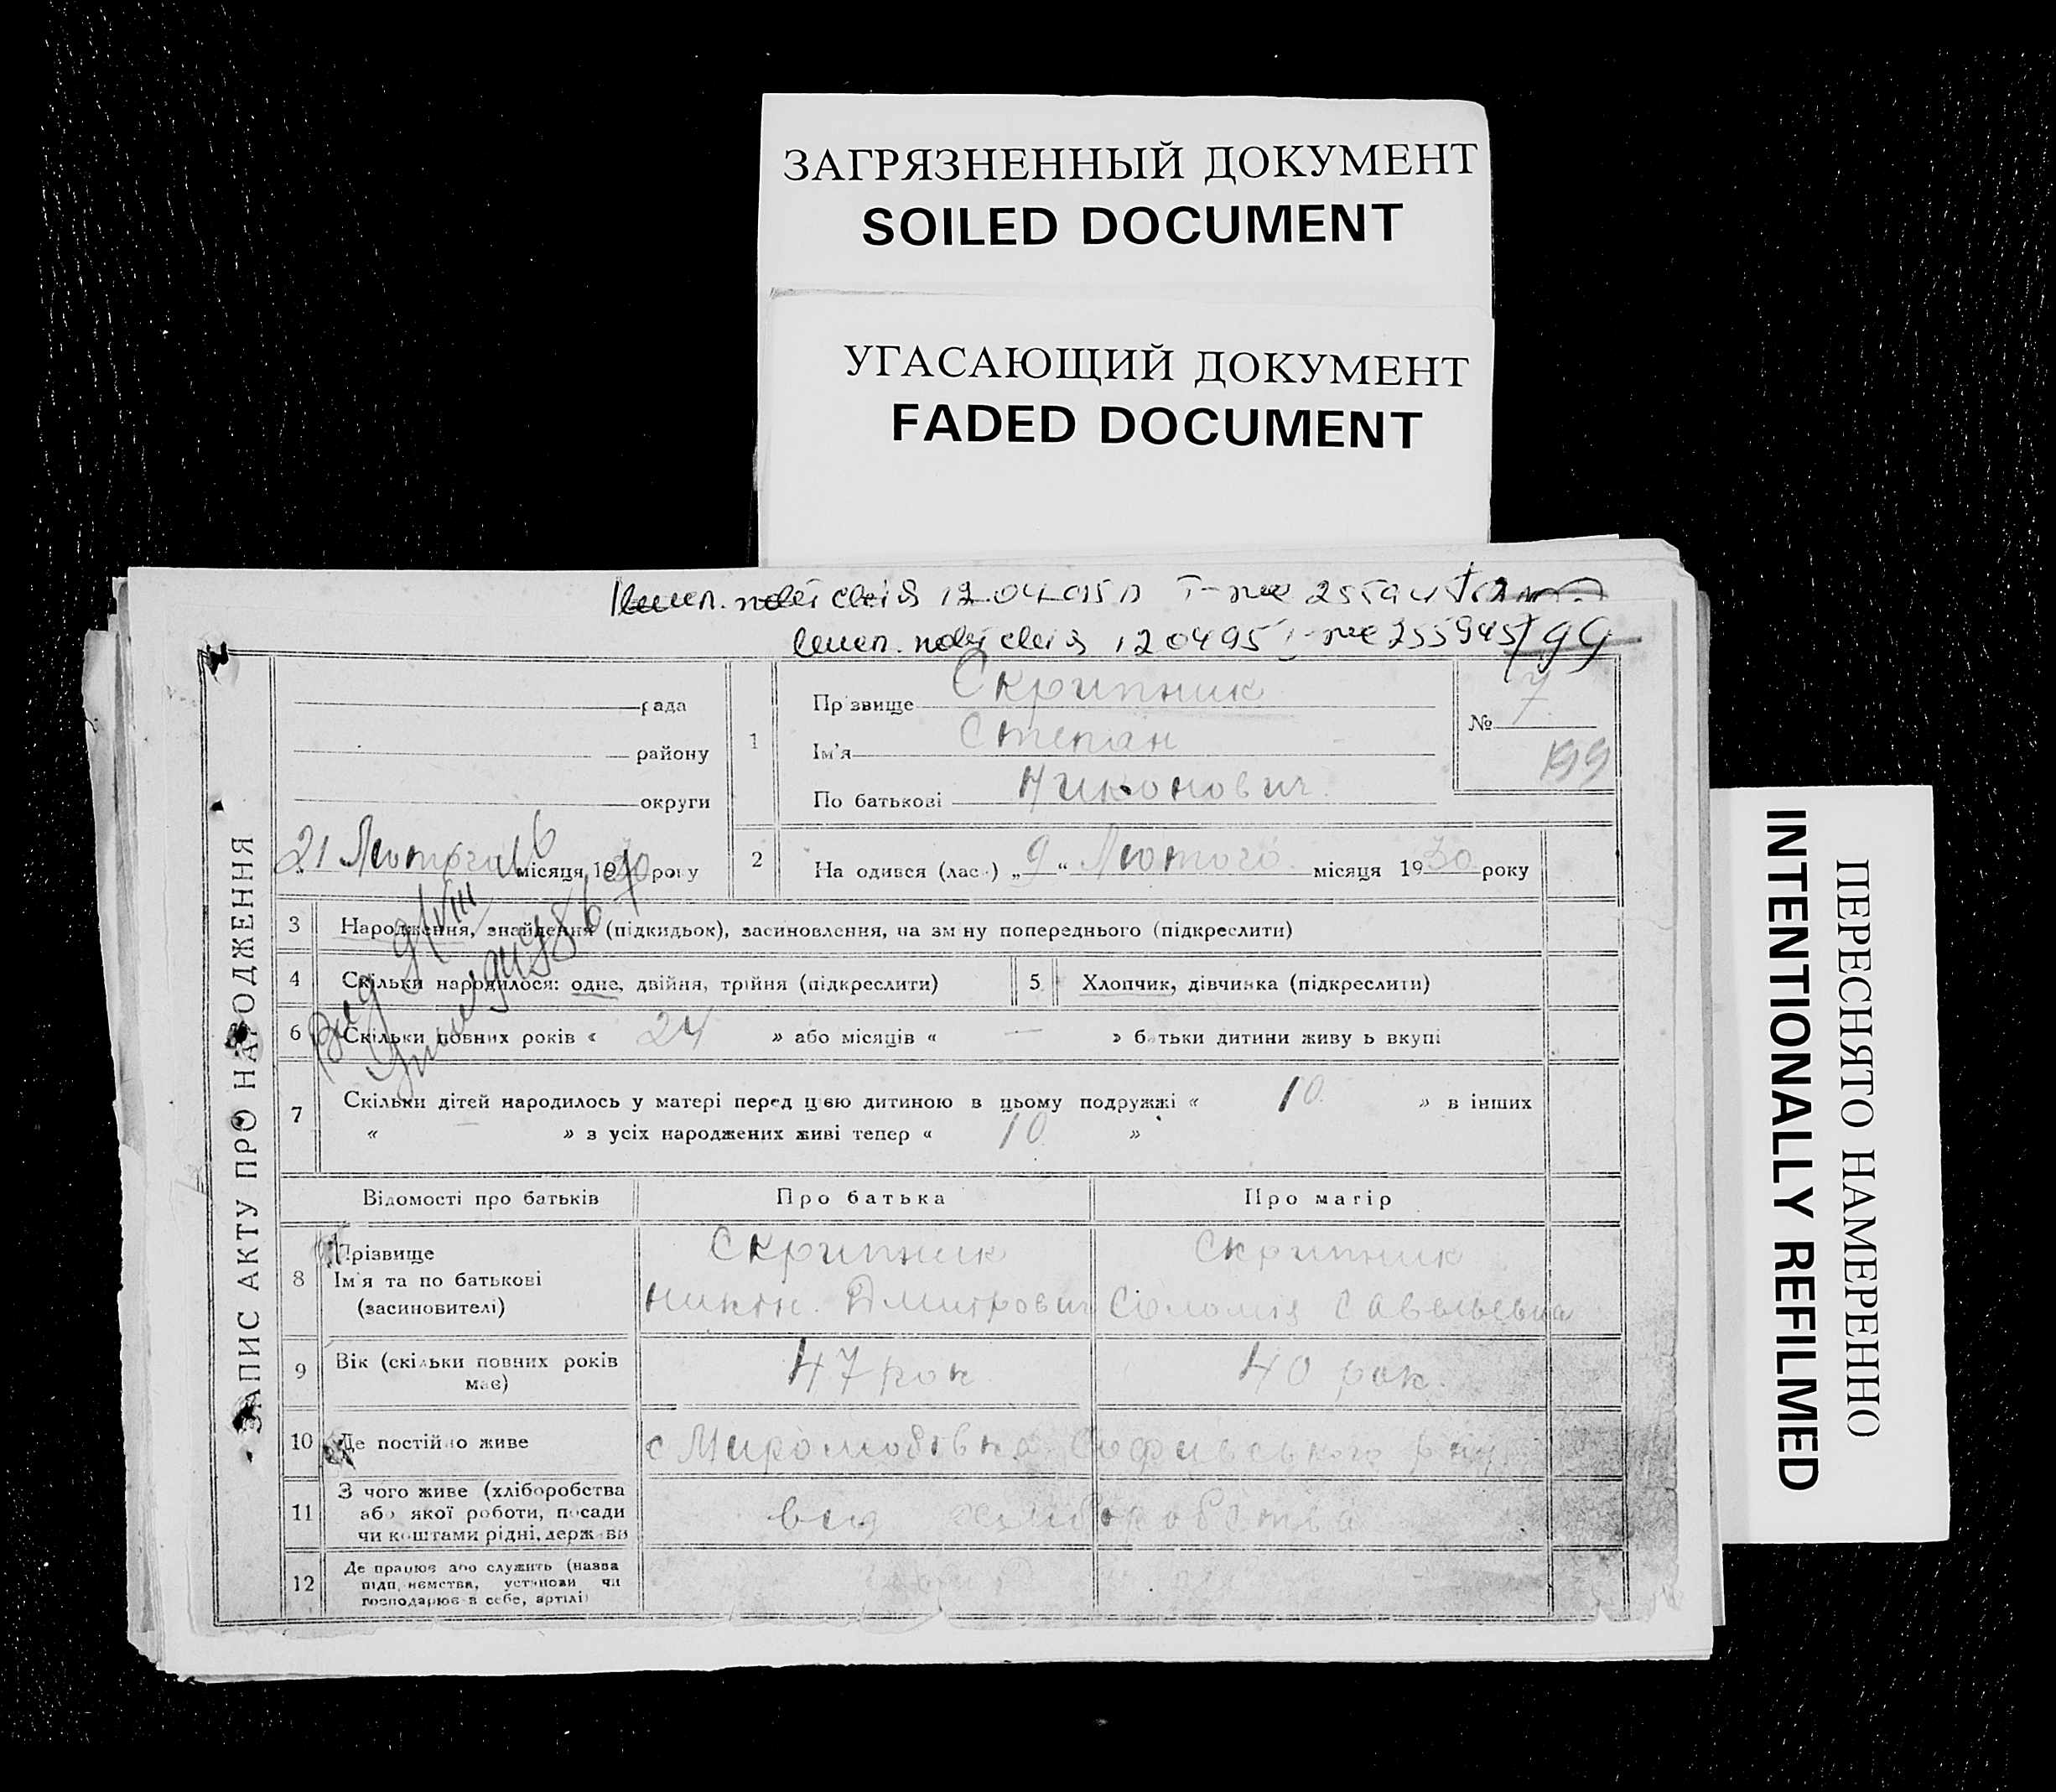 ЗАГРЯЗНЕННЫЙ ДОКУМЕНТ
SOILED DOCUMENT
УГАСАЮЩИЙ ДОКУМЕНТ
FADED DOCUMENT
ПЕРЕСНЯТО НАМЕРЕННО
INTENTIONALLY REFILMED
ЗАПИС АКТУ ПРО НАРОДЖЕННЯ
рада
району
округи
21 Лютого місяця 1930 року
1
Прізвище Скрипник
Ім'я Степан
По батькові Никонович
№ 7
199
2
Народився (лась) „ 9 “ Лютого місяця 1930 року
3 Народження, знайдення (підкидьок), засиновлення, на зміну попереднього (підкреслити)
4 Скільки народилося: одне, двійня, трійня (підкреслити)
5 Хлопчик, дівчинка (підкреслити)
6 Скільки повних років « 24 » або місяців « — » батьки дитини живуть вкупі
7 Скільки дітей народилось у матері перед цією дитиною в цьому подружжі « 10 » в інших
« » з усіх народжених живі тепер « 10 »
Відомості про батьків Про батька Про матір
8 Прізвище
Ім'я та по батькові
(засиновителі)
Скрипник
Никон. Дмитрович
Скрипник
Соломія Савельевна
9 Вік (скільки повних років
має)
47 рок
40 рок.
10 Де постійно живе
с Миролюбівка Софиевського р-ну
11 З чого живе (хліборобства
або якої роботи, посади
чи коштами рідні, держави
від хліборобства
12 Де працює або служить (назва
підприємства, установи чи
господарює в себе, артілі)